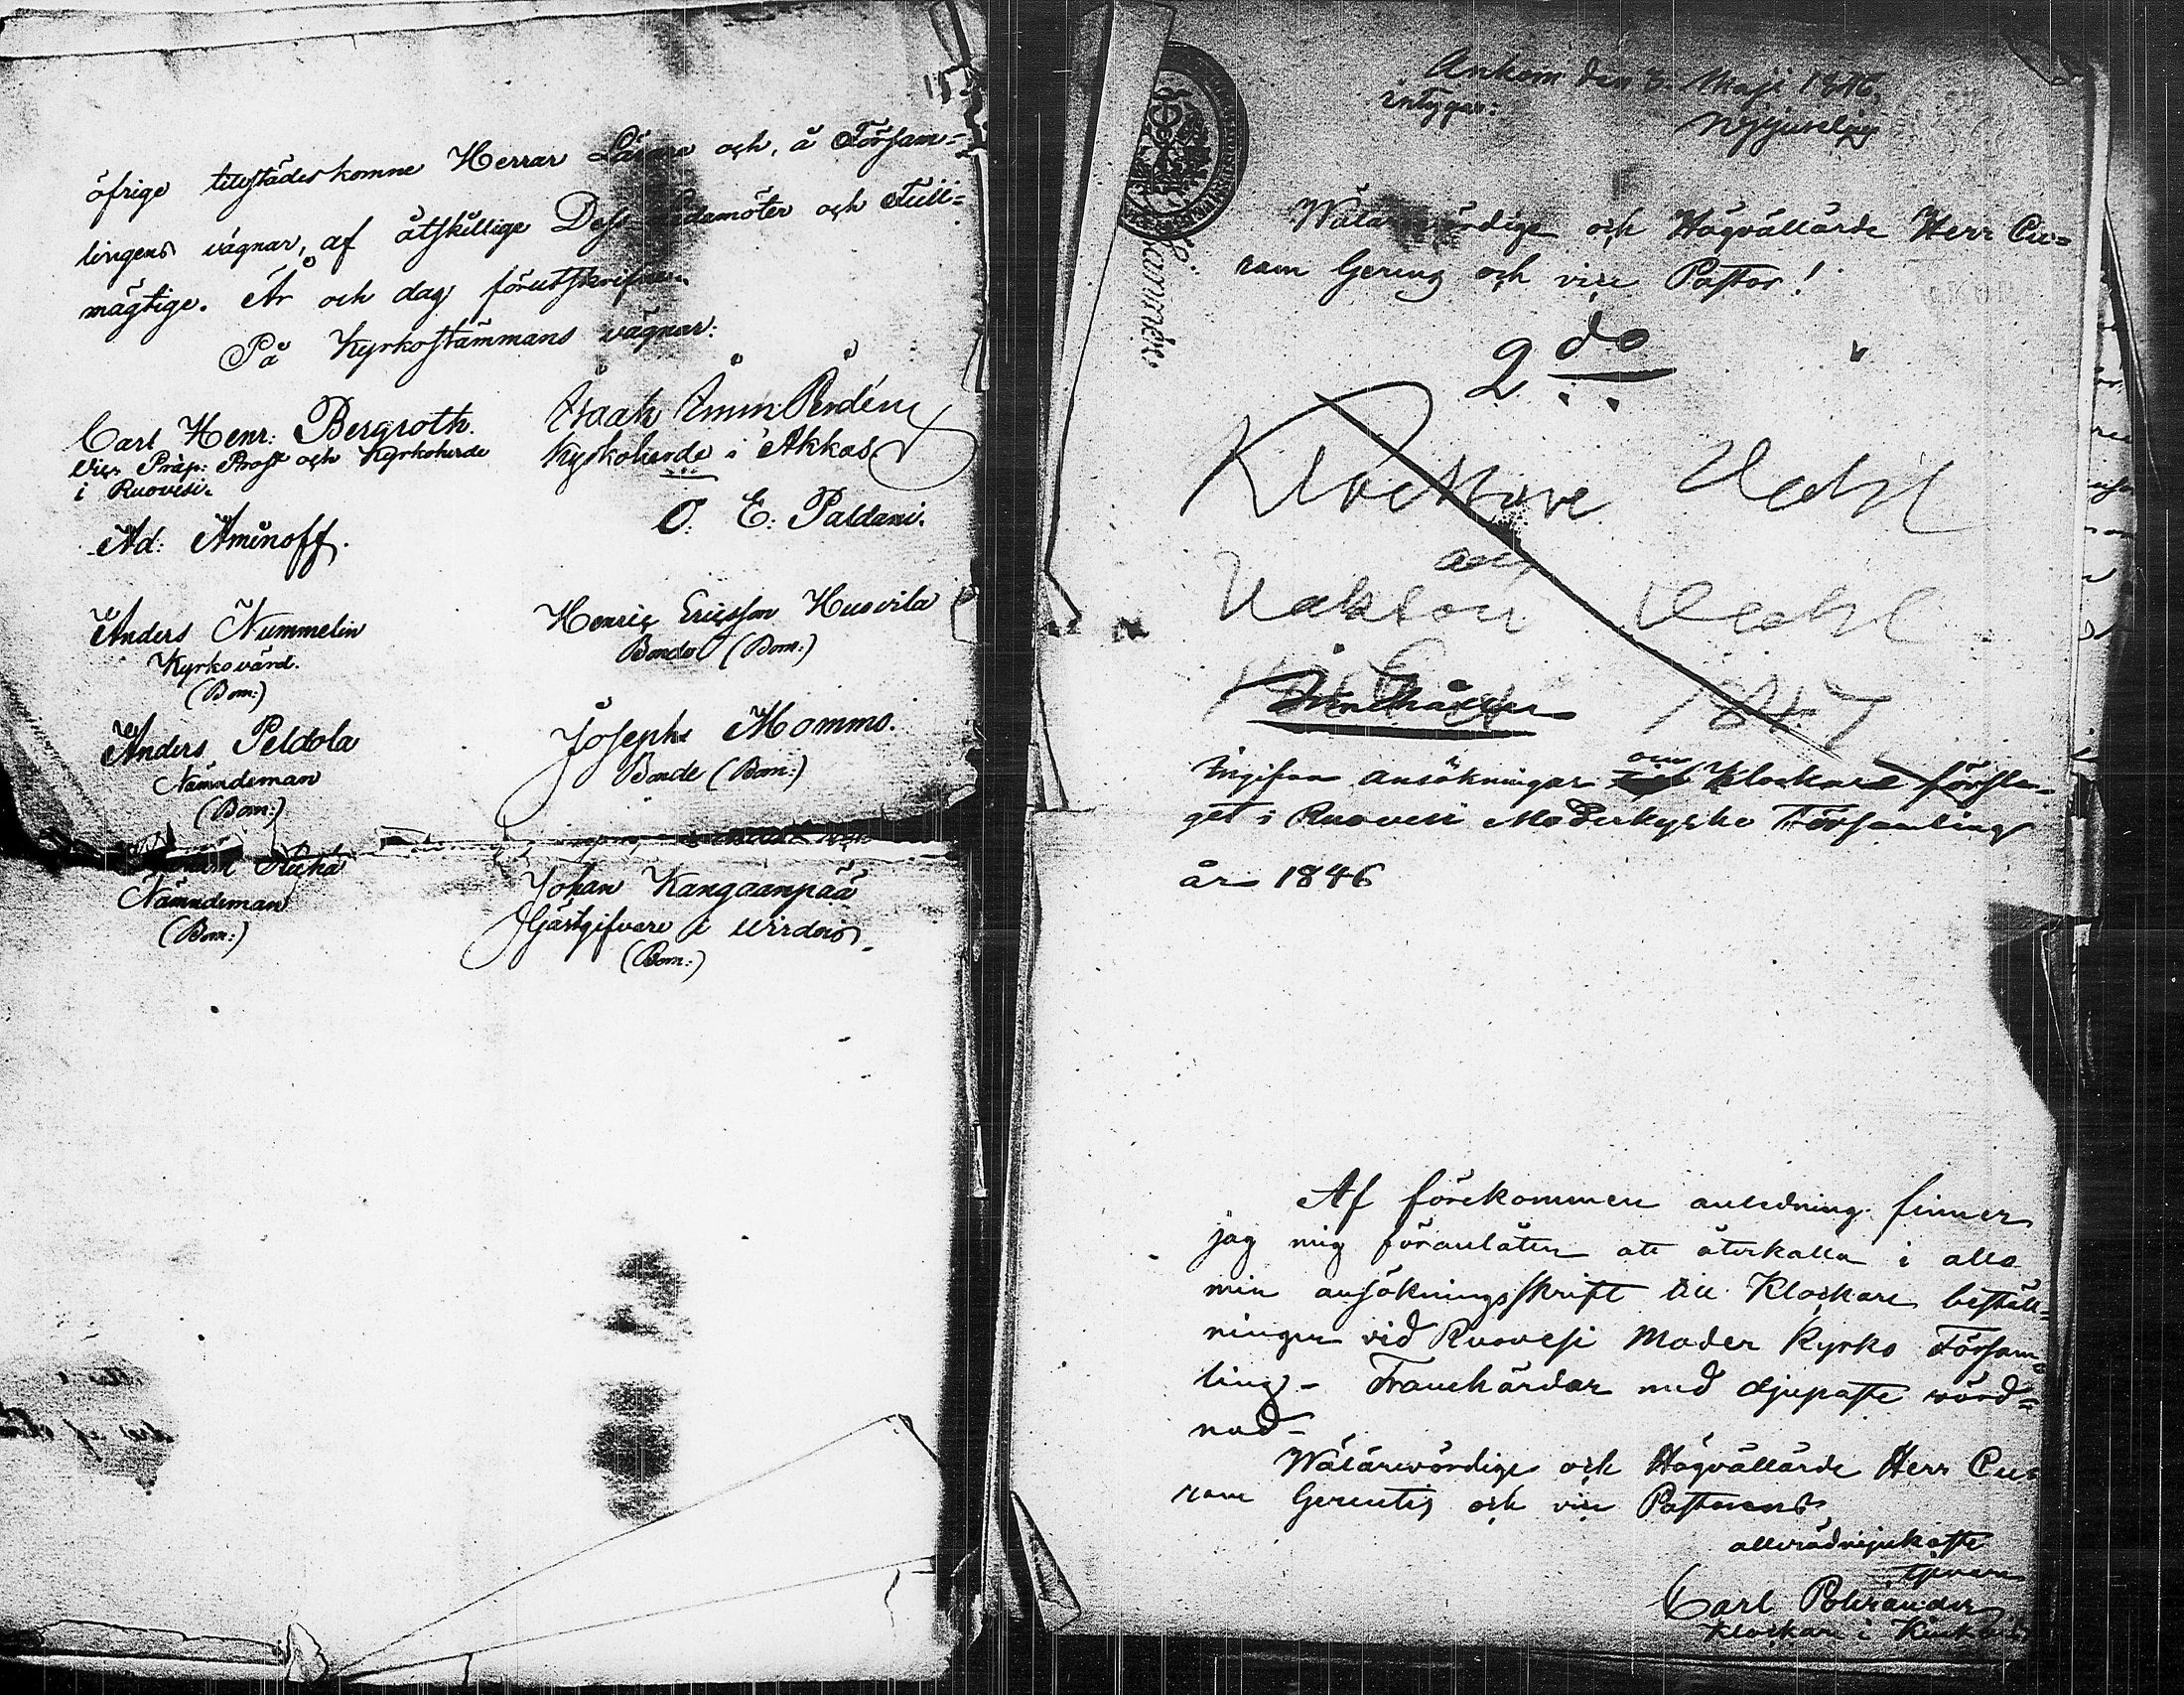 öfrige tillstädeskomne Herrar Lärare och, å Försam=
lingens vägnar, af åtskillige Dess Ledamöter och Full=
mägtige. År och dag förutskrifne.
På Kyrkostämmans vägnar:
Carl Henr: Bergroth.
Vice Præp: Prost och Kyrkoherde
i Ruovesi.
Ad: Aminoff.
Anders Nummelin
Kyrkovärd.
(Bom:)
Anders Peldola
Nämndeman
(Bom:)
Nämndeman
(Bom:)
Isaak
Kyrkoherde i Akkas
O. E. Paldani.
Henric Ericsson
Bonde (Bom:)
Joseph Mommo.
Bonde (Bom:)
Johan Kangaanpää
Gästgifvare i Wirdois.
(Bom:)
Ankom den 3. Maji 1846,
intygar:
Wälärevördige och Högvällärde Herr Cu=
ram Gerens och vice Pastor!
2do
Klockare
1847
Ingifna ansökningar om Klockare förslaget
get i Ruovesi Moderkyrko Församling
år 1846
Af förekommen anledning finner
jag mig föranlåten att återkalla i allo
min ansökningsskrift till Klockare beställ=
ningen vid Ruovesi Moder Kyrko Försam=
ling - Framhärdar med djupaste vörd=
nad -
Wälärevördige och Högvällärde Herr Cu=
ram Gerentis och vice Pastorens
allraödmjukaste
tjenare
Carl
Klockare i